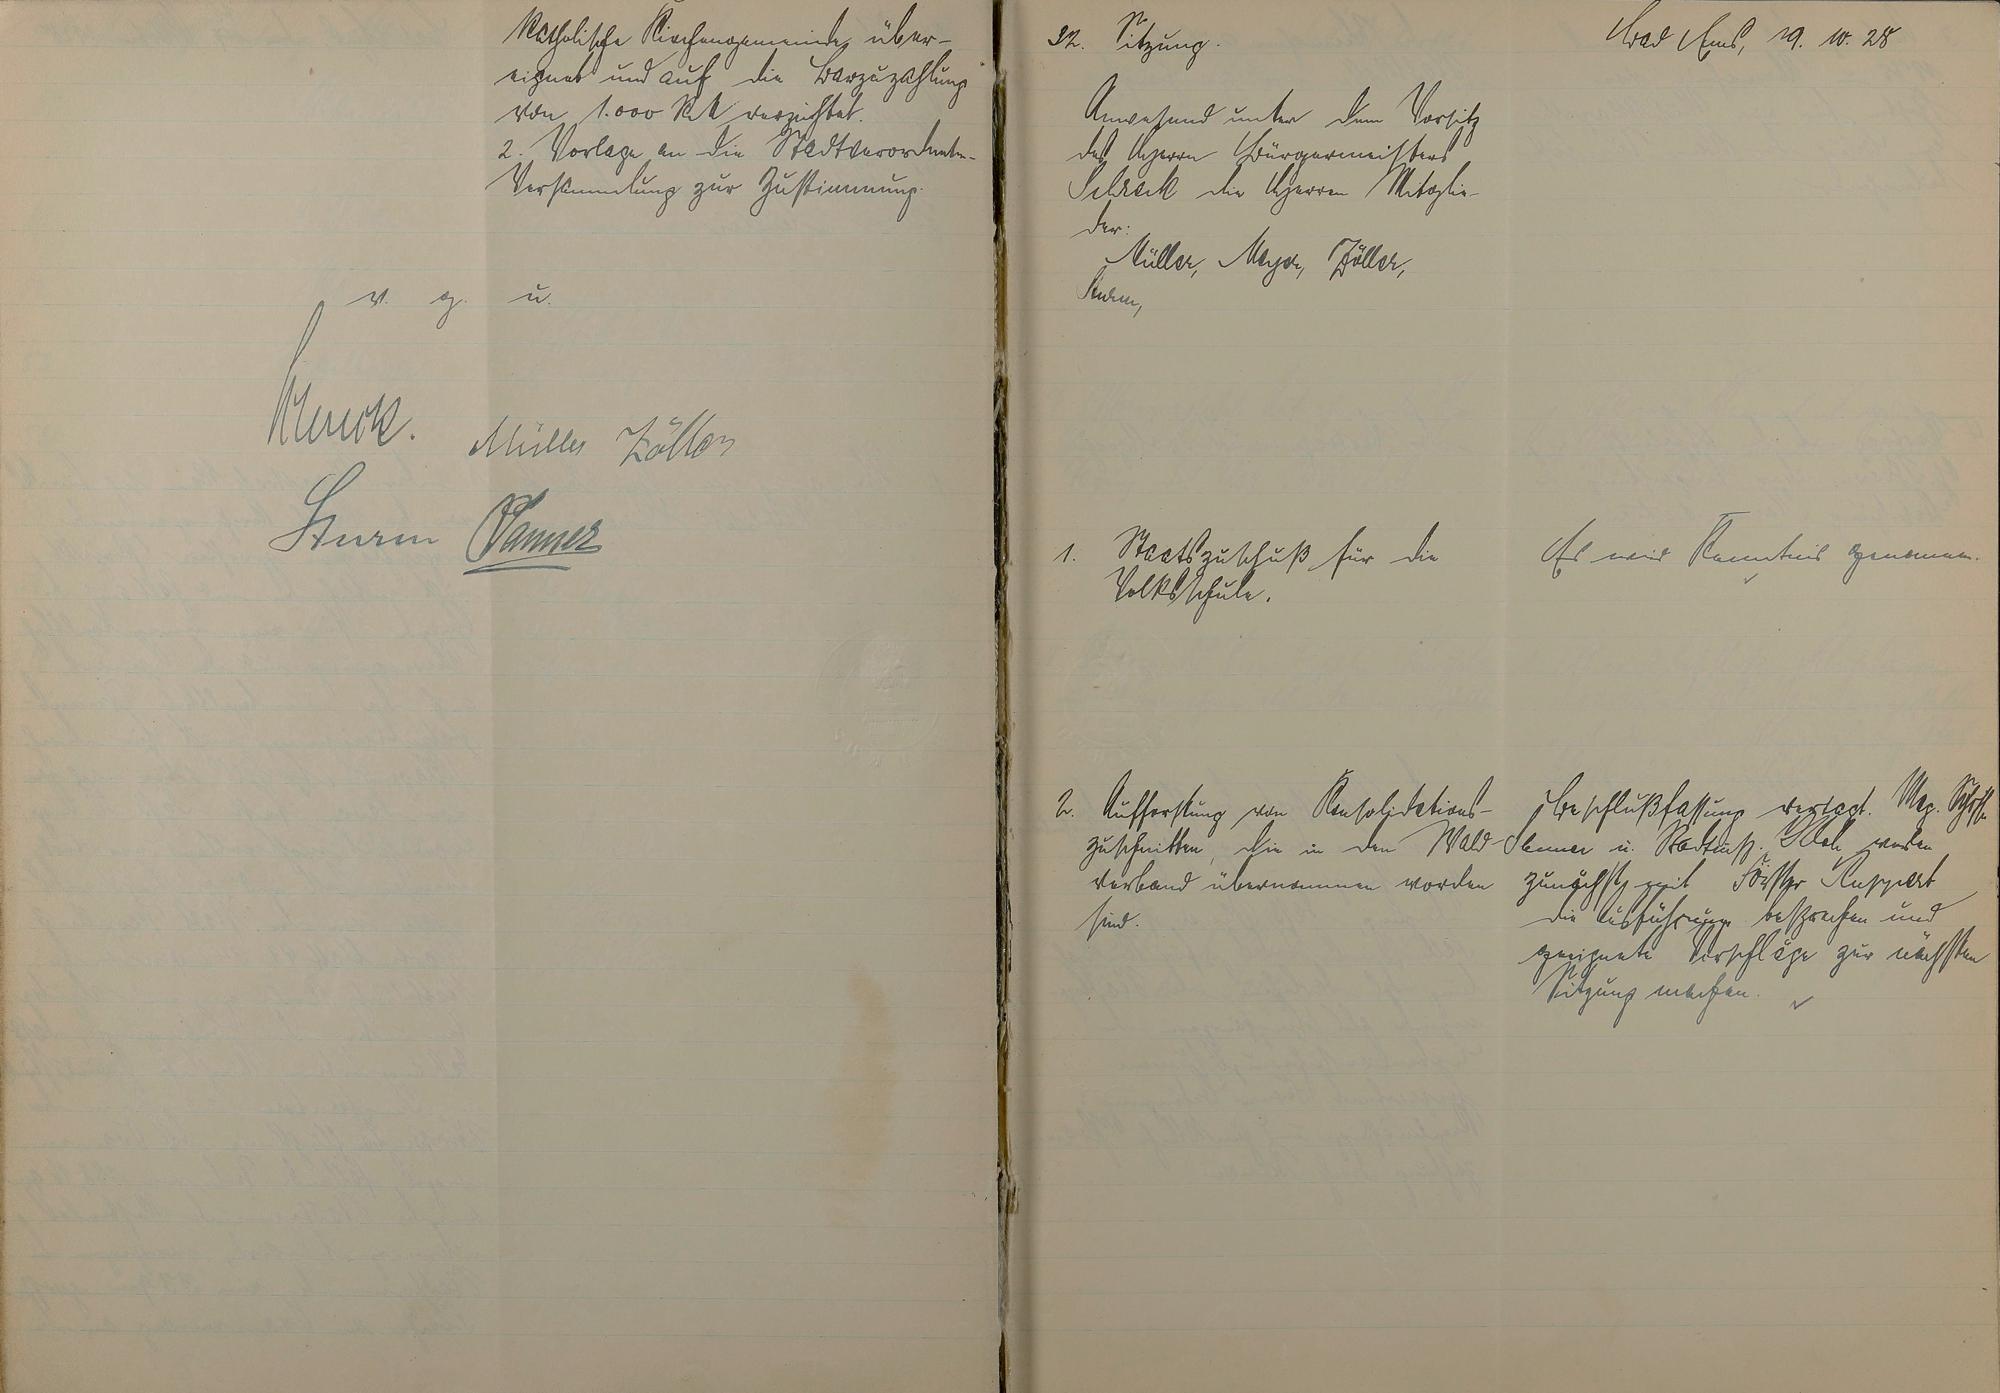 Katholische Kirchengemeinde über-
eignet und auf die Barzuzahlung
von 1.000 RM verzichtet.
2. Vorlage an die Stadtverordneten-
Versammlung zur Zustimmung.
v. g. u.
Müller Zöller
Sturm Sanner
32. Sitzung.
Bad Ems, 19. 10. 28
Anwesend unter dem Vorsitz
des Herrn Bürgermeisters
Schreck die Herren Mitglie-
der:
Müller, Meyer, Zöller,
Sturm,
1. Staatszuschuß für die
Volksschule.
Es wird Kenntnis genommen.
2. Aufforstung von Konsolidations-
zuschnitten, die in den Wald-
verband übernommen worden
sind.
Beschlußfassung vertagt. Mag. Schöffe
Sanner u. werden
zunächst mit Förster Ruppert
die Ausführung besprechen und
geeignete Vorschläge zur nächsten
Sitzung machen.